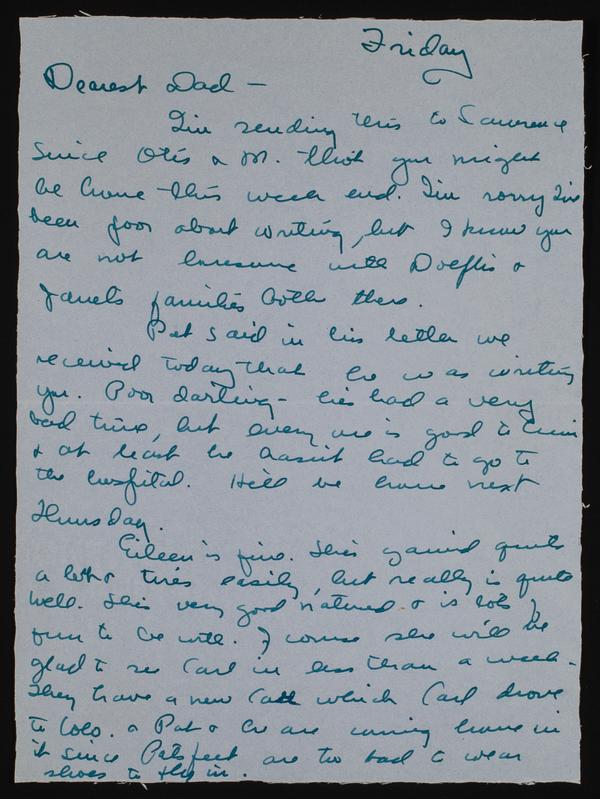 Friday
Dearest Dad —
I'm sending this to Lawrence
since Otis & M. thot you might
be home this week end. I'm sorry I've
been poor about writing, but I know you
are not lonesome with &
Janets families both there.
Pat said in his letter we
received today that he was writing
you. Poor darling – he's had a very
bad time, but every one is good to him
& at least he hasn't had to go to
the hospital. He'll be home next
Thursday.
Eileen is fine. She's gained quite
a lot & tires easily, but really is quite
well. She's very good natured & is lots of
fun to be with. Of course she will be
glad to see Carl in less than a week.
They have a new Cad which Carl drove
to Colo. & Pat & he are coming home in
it since Pats feet are too bad to wear
shoes to fly in.